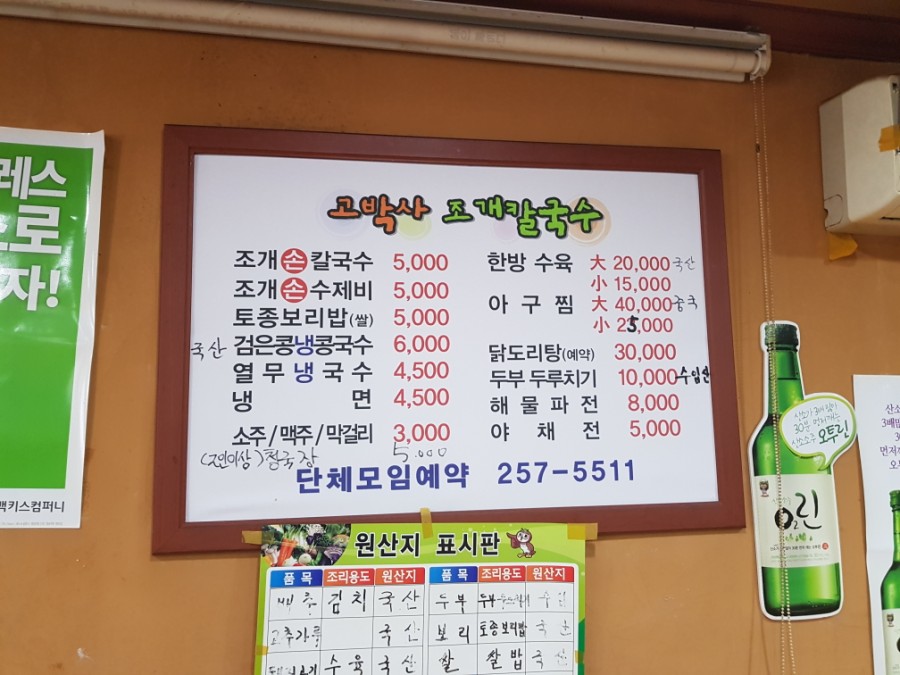 레스
으로
자!
맥키스컴퍼니
고박사 조개칼국수
조개 손 칼국수 5,000
조개 손 수제비 5,000
토종보리밥(쌀) 5,000
국산 검은콩냉콩국수 6,000
열무냉국수 4,500
냉면 4,500
소주/맥주/막걸리 3,000
(2인이상) 청국장 5.000
한방 수육 大 20,000 국산
小 15,000
아구찜 大 40,000 중국
小 25,000
닭도리탕(예약) 30,000
두부 두루치기 10,000 수입산
해물파전 8,000
야채전 5,000
단체모임예약 257-5511
원산지 표시판
품목 조리용도 원산지 품목 조리용도 원산지
배추 김치 국산 두부 수입
고추가루 국산 보리 토종보리밥 국산
수육 국산 쌀 쌀밥 국산
산소가 3배 많아
30분 먼저 깨는
산소소주 오투린
O2린
산소
3배
먼저